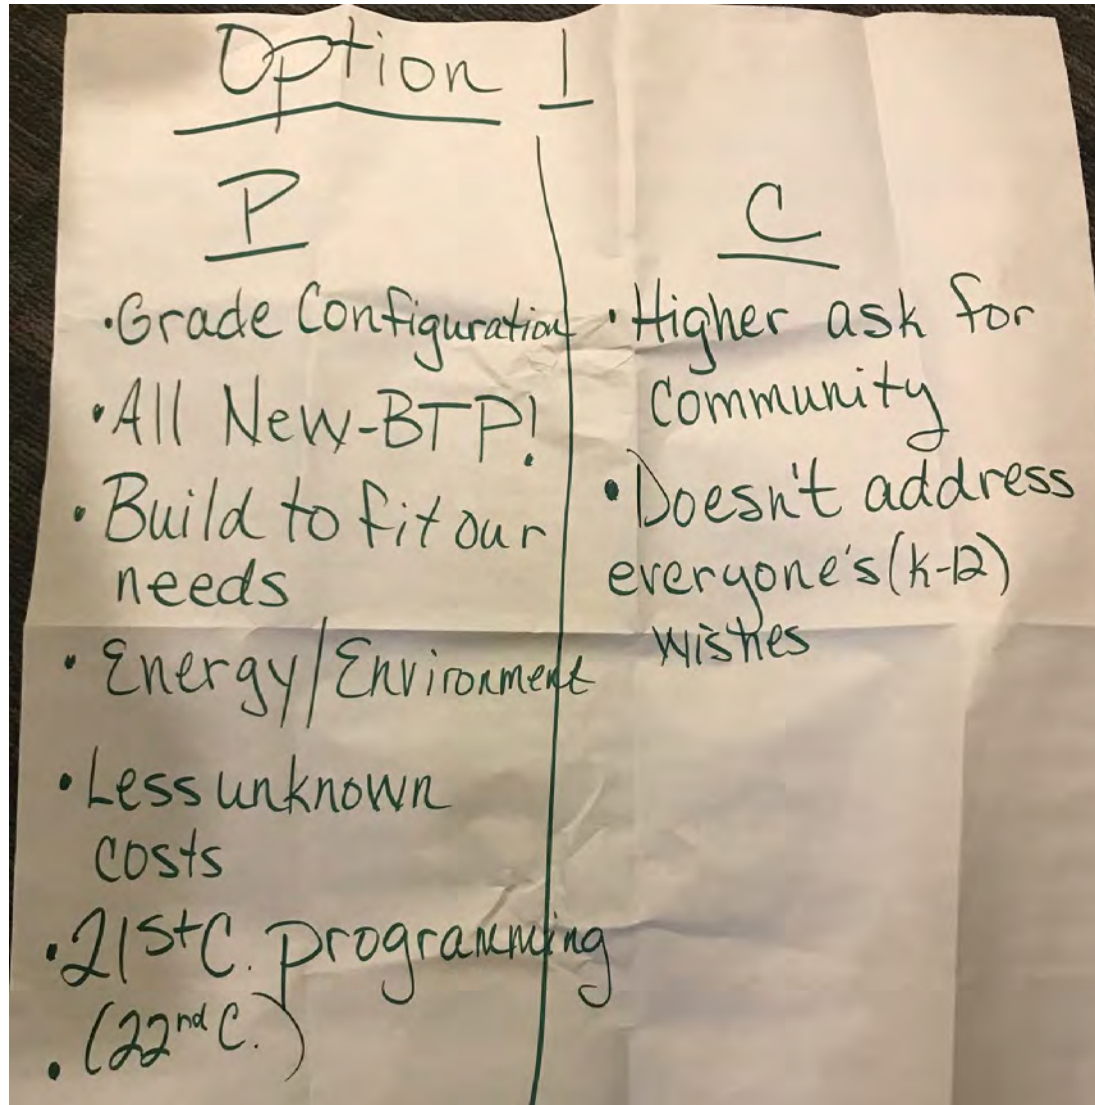 Option 1
P
• Grade Configuration
• All New-BTP!
• Build to fit our
needs
• Energy/Environment
• Less unknown
costs
• 21st C. programming
• (22nd C.)
C
• Higher ask for
Community
• Doesn't address
everyone's (K-12)
wishes